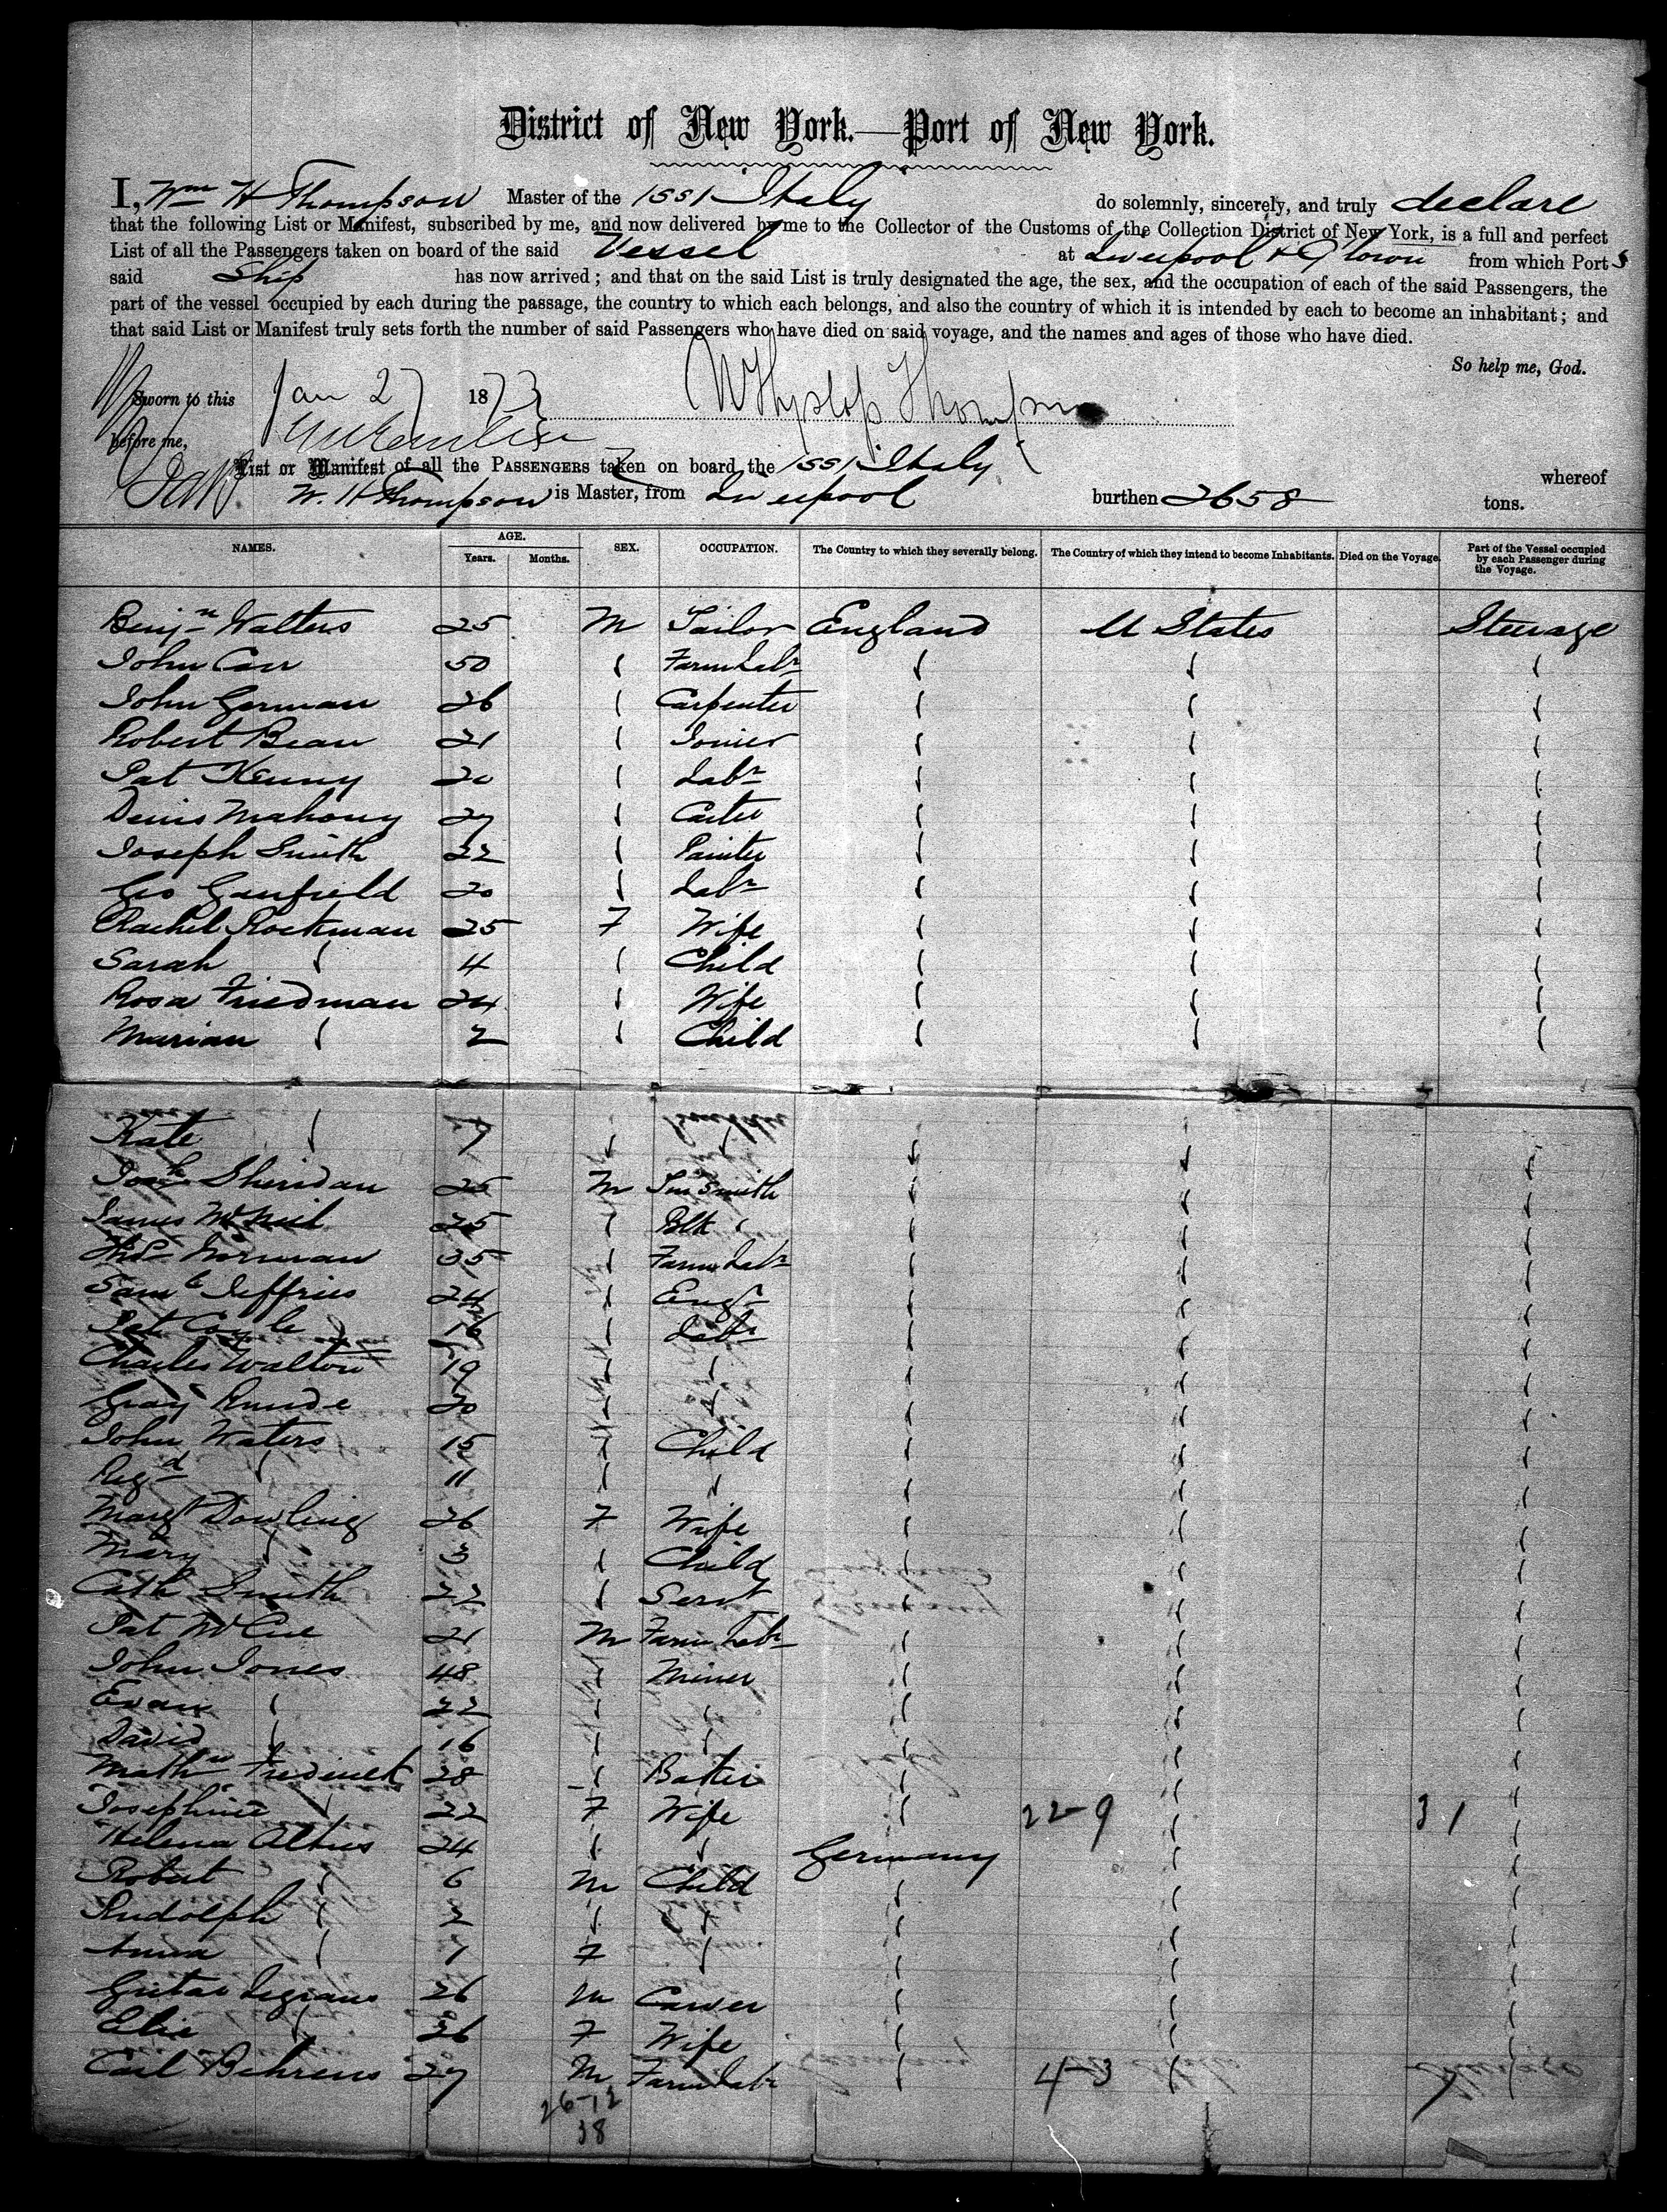 District of New York.—Port of New York.
I, Wm H Thompson Master of the SS Italy do solemnly, sincerely, and truly declare
that the following List or Manifest, subscribed by me, and now delivered by me to the Collector of the Customs of the Collection District of New York, is a full and perfect
List of all the Passengers taken on board of the said Vessel at Liverpool & Qtown from which Ports
said Ship has now arrived; and that on the said List is truly designated the age, the sex, and the occupation of each of the said Passengers, the
part of the vessel occupied by each during the passage, the country to which each belongs, and also the country of which it is intended by each to become an inhabitant; and
that said List or Manifest truly sets forth the number of said Passengers who have died on said voyage, and the names and ages of those who have died.
So help me, God.
Sworn to this Jan 27 1873 W Hyslop Thompson
before me,
List or Manifest of all the PASSENGERS taken on board the SS Italy whereof
W. H Thompson is Master, from Liverpool burthen 2658 tons.
NAMES. AGE. Years. Months. SEX. OCCUPATION. The Country to which they severally belong. The Country of which they intend to become Inhabitants. Died on the Voyage. Part of the Vessel occupied by each Passenger during the Voyage.
Benjn Walters 25 M Tailor England U States Steerage
John Carr 50 Farm Labr
John Gorman 26 Carpenter
Robert Bean 21 Joiner
Pat Kenny 20 Labr
Denis Mahony 27 Carter
Joseph Smith 22 Painter
Geo Garfield 20 Labr
Rachel Rockman 25 F Wife
Sarah 4 Child
Rosa Friedman 24 Wife
Marian 2 Child
Kate 7
Josh Sheridan 25 M Tin Smith
James McNeil 25 Blk
Thos Norman 35 Farm Labr
Saml Jeffries 24 Engr
Pat Coyle 16 Labr
Charles Walton 19
Gray 20
John Waters 15 Child
Regd 11
Margt Dowling 26 F Wife
Mary 3 Child
Cath Smith 22 Servt
Pat McCue 21 M Farm Labr
John Jones 48 Miner
Evan 22
David 16
Mathw Frederick 28
Josephine 22 F Wife 22-9 31
Helena 24 Germany
Robert 6 M Child
Rudolph 2
Anna 1 F
26 M Carver
Elie 26 F Wife
Carl Behrens 27 M Farm Labr 4-3 7
26-12
38